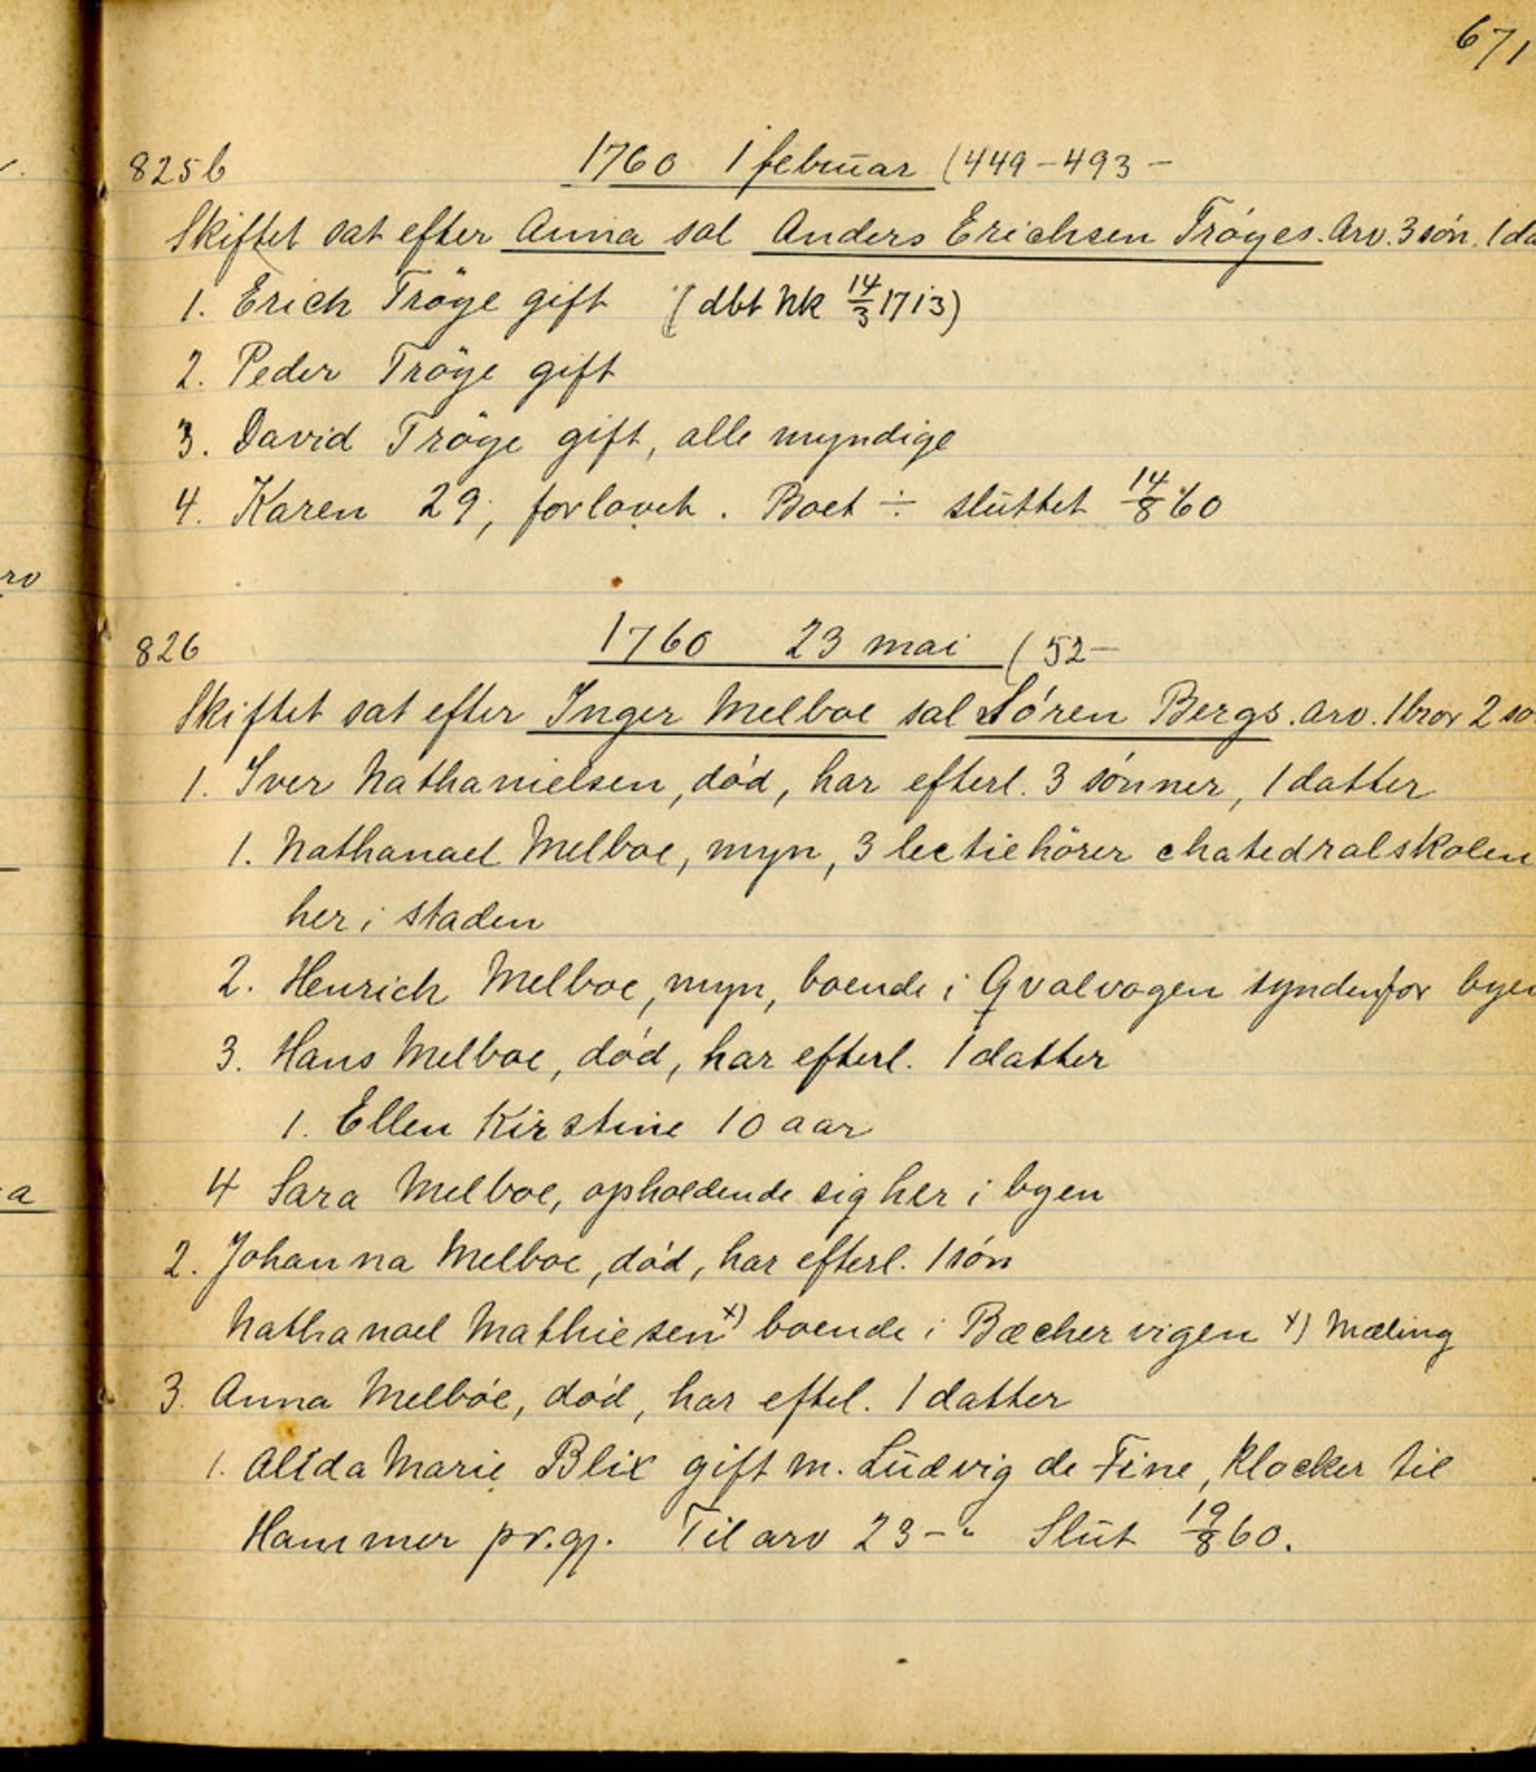 671
825b 1760 1 februar (449-493-
Skiftet sat efter Anna sal Anders Erichsen Tröyes. Arv. 3 sön. 1 da
1. Erich Tröye gift (dbt Nk 14/3 1713)
2. Peder Tröye gift
3. David Tröye gift, alle myndige
4. Karen 29, forlovet. Boet ÷ sluttet 14/8 60
ro
826 1760 23 mai (52-
Skiftet sat efter Inger Melboe sal Sören Bergs. Arv. 1 bror 2 sö
1. Iver Nathanielsen, död, har efterl. 3 sönner, 1 datter
1. Nathanael Melboe, myn, 3 lectiehörer chatedralskolen
her i staden
2. Henrich Melboe, myn, boende i Qvalvogen syndenfor byen
3. Hans Melboe, död, har efterl. 1 datter
1. Ellen Kirstine 10 aar
a
4 Sara Melboe, opholdende sig her i byen
2. Johanna Melboe, död, har efterl. 1 sön
Nathanael Mathiesen x) boende i Bæchervigen x) Mæling
3. Anna Melböe, död, har eftel. 1 datter
1. Alida Marie Blix gift m. Ludvig de Fine, klocker til
Hammer pr.gj. Til arv 23-" Slut 19/8 60.